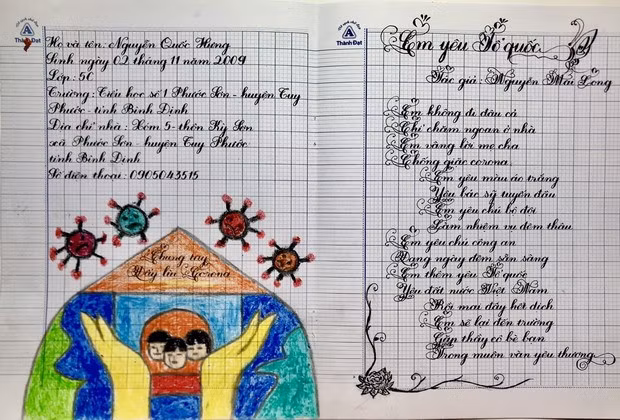 Thành Đạt
Họ và tên: Nguyễn Quốc Hưng
Sinh ngày 02 tháng 11 năm 2009
Lớp: 5C
Trường: Tiểu học số 1 Phước Sơn - huyện Tuy
Phước - tỉnh Bình Định
Địa chỉ nhà: Xóm 5 - thôn Kỳ Sơn
xã Phước Sơn - huyện Tuy Phước
tỉnh Bình Định
Số điện thoại: 0905043515
Chung tay
Đẩy lùi Corona
Thành Đạt
Em yêu Tổ quốc
Tác giả: Nguyễn Mai Long
Em không đi đâu cả
Chỉ chăm ngoan ở nhà
Em vâng lời mẹ cha
Chống giặc corona
Em yêu màu áo trắng
Yêu bác sỹ tuyến đầu
Em yêu chú bộ đội
Làm nhiệm vụ đêm thâu
Em yêu chú công an
Dạng ngày đêm sẵn sàng
Em thêm yêu Tổ quốc
Yêu đất nước Việt Nam
Rồi mai đây hết dịch
Em sẽ lại đến trường
Gặp thầy cô bè bạn
Trong muôn vàn yêu thương